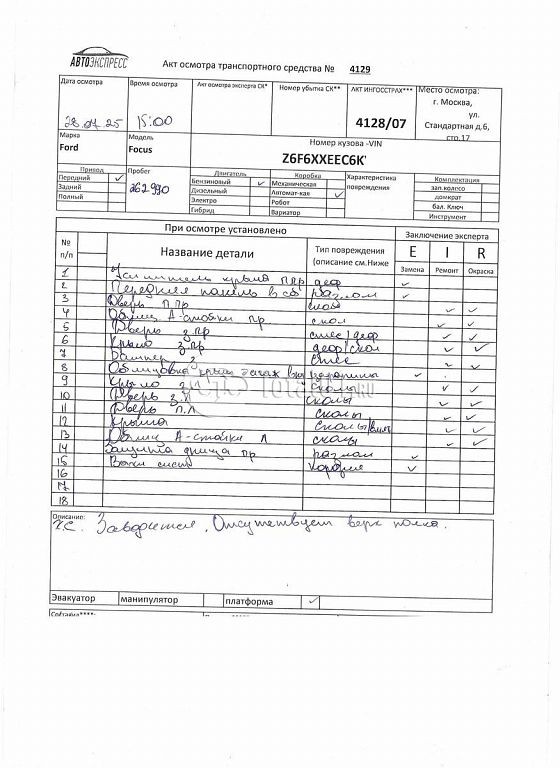 АВТОЭКСПРЕСС
Акт осмотра транспортного средства № 4129
Дата осмотра
28.07.25
Время осмотра
15:00
Акт осмотра эксперта СК*
Номер убытка СК**
АКТ ИНГОССТРАХ***
4128/07
Место осмотра:
г. Москва,
ул.
Стандартная д.6,
стр.17
Марка
Ford
Модель
Focus
Номер кузова -VIN
Z6F6XXEEC6K
Привод
Передний ✓
Задний
Полный
Пробег
262990
Двигатель
Бензиновый ✓
Дизельный
Электро
Гибрид
Коробка
Механическая
Автомат-кая ✓
Робот
Вариатор
Характеристика
повреждения
Комплектация
зап.колесо
домкрат
бал. Ключ
Инструмент
При осмотре установлено
Заключение эксперта
№ п/п
Название детали
Тип повреждения
(описание см.Ниже
E I R
Замена Ремонт Окраска
1 Усилитель крыла ППР деф ✓
2 Передняя панель в сб разлом ✓
3 Дверь П.Пр скол ✓ ✓
4 Облиц А-стойки Пр скол ✓ ✓
5 Дверь з.пр спес/деф ✓ ✓
6 Крыло з.пр деф/скол ✓ ✓
7 Бампер з
8 Облицовка крыш багаж царапины ✓
9 Крыло з сколы ✓ ✓
10 Дверь з.л сколы ✓ ✓
11 Дверь П.Л сколы ✓ ✓
12 Крыша Сколы ✓ ✓
13 Облиц А-стойки Л сколы ✓ ✓
14 Защита днища пр разлом ✓
15 ✓
16
17
18
Описание:
т.с. Заводится. Отсутствует верх полка.
Эвакуатор манипулятор платформа ✓